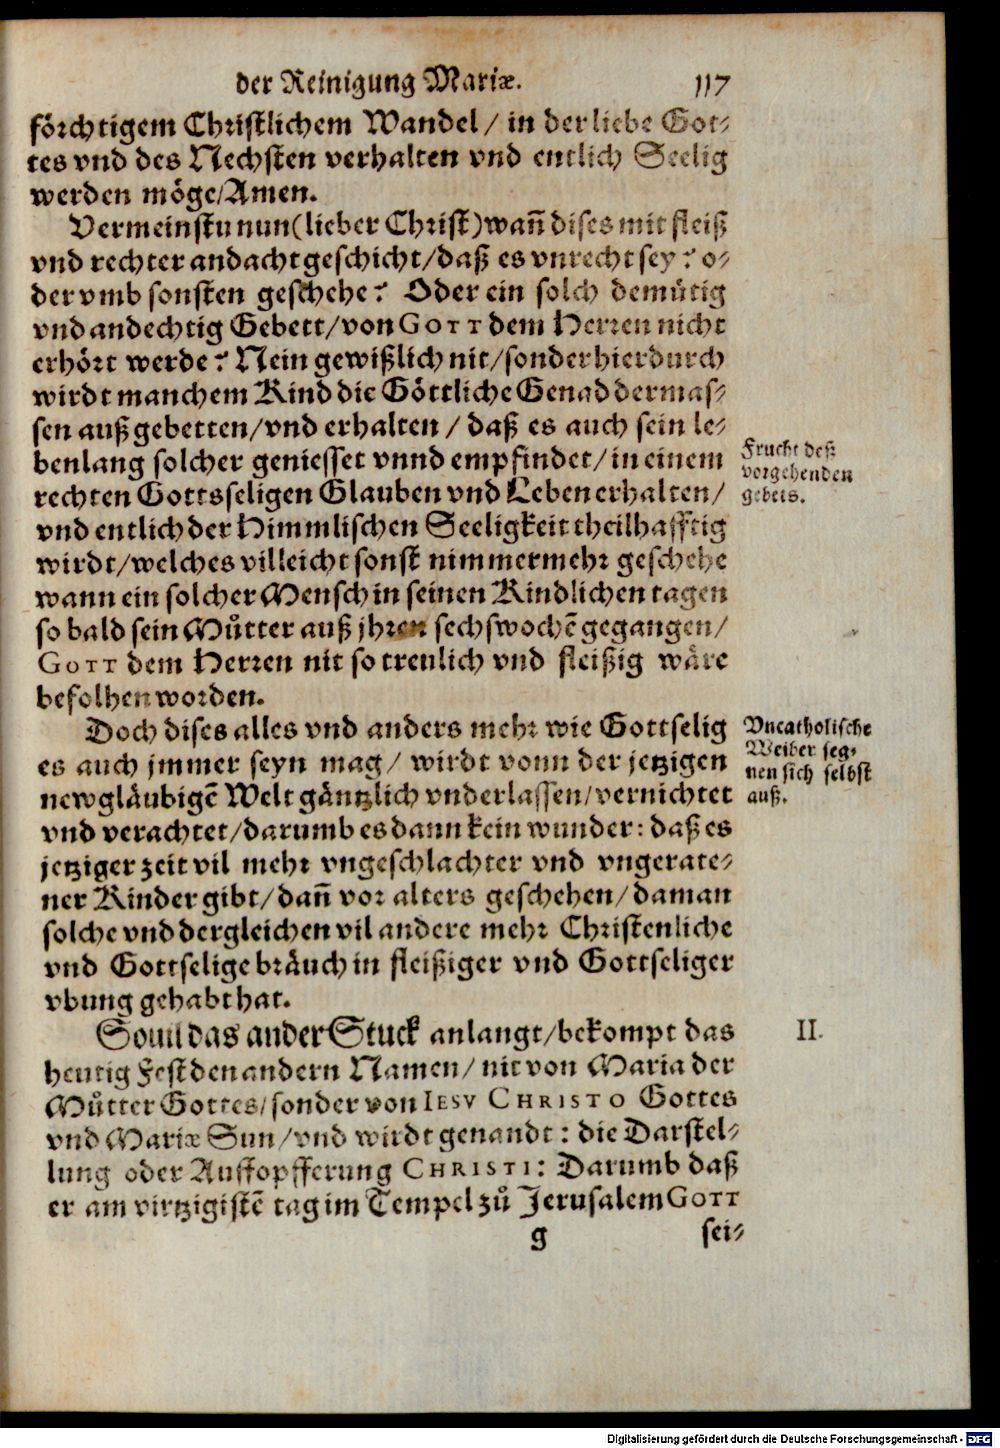 der Reinigung Mariæ. 117
förchtigem Christlichem Wandel / in der liebe Got⸗
tes vnd des Nechsten verhalten vnd entlich Seelig
werden möge/Amen.
Vermeinstu nun(lieber Christ)wañ dises mit fleiß
vnd rechter andacht geschicht/daß es vnrecht sey? o⸗
der vmb sonsten geschehe? Oder ein solch demütig
vnd andechtig Gebett/von GOTT dem Herren nicht
erhört werde? Nein gewißlich nit/sonder hierdurch
wirdt manchem Kind die Göttliche Genad dermas⸗
sen auß gebetten/vnd erhalten / daß es auch sein le⸗
benlang solcher geniesset vnnd empfindet/in einem
rechten Gottsseligen Glauben vnd Leben erhalten/
vnd entlich der Himmlischen Seeligkeit theilhafftig
wirdt/welches villeicht sonst nimmermehr geschehe
wann ein solcher Mensch in seinen Kindlichen tagen
so bald sein Můtter auß jhren sechswochē gegangen/
GOTT dem Herren nit so treulich vnd fleißig wäre
befolhen worden.
Frucht deß
vorgehenden
gebets.
Doch dises alles vnd anders mehr wie Gottselig
es auch jmmer seyn mag/ wirdt vonn der jetzigen
newgläubigē Welt gäntzlich vnderlassen/vernichtet
vnd verachtet/darumb es dann kein wunder: daß es
jetziger zeit vil mehr vngeschlachter vnd vngerate⸗
ner Kinder gibt/dañ vor alters geschehen/da man
solche vnd dergleichen vil andere mehr Christenliche
vnd Gottselige bräuch in fleißiger vnd Gottseliger
vbung gehabt hat.
Vncatholische
Weiber seg⸗
nen sich selbst
auß.
Souil das ander Stuck anlangt/bekompt das
heutig Fest den andern Namen/ nit von Maria der
Můtter Gottes/sonder von IESV CHRISTO Gottes
vnd Mariæ Sun/vnd wirdt genandt: die Darstel⸗
lung oder Auffopfferung CHRISTI: Darumb daß
er am virtzigistē tag im Tempel zů Jerusalem GOTT
II.
g sei⸗
Digitalisierung gefördert durch die Deutsche Forschungsgemeinschaft - DFG